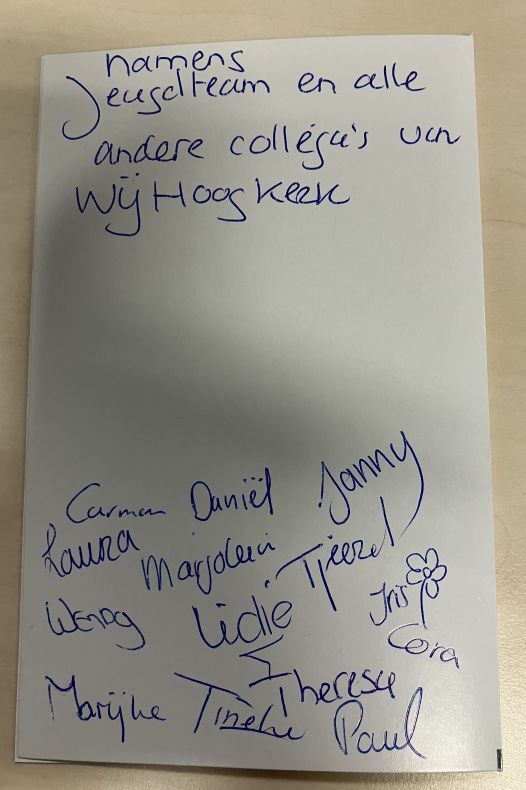 namens
Jeugdteam en alle
andere collega's van
Wij Hoogkerk
Carmen Daniël Janny
Laura Marjolein Tjeerd
Wendy Lidie Iris
Cora
Theresie
Marijke Tineke Paul